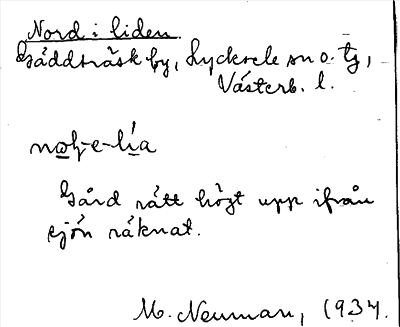 Nord i liden
Gäddträsk by, Lycksele sn o. tg,
Västerb. l.
Gård rätt högt upp ifrån
sjön räknat.
M. Neuman, 1934.